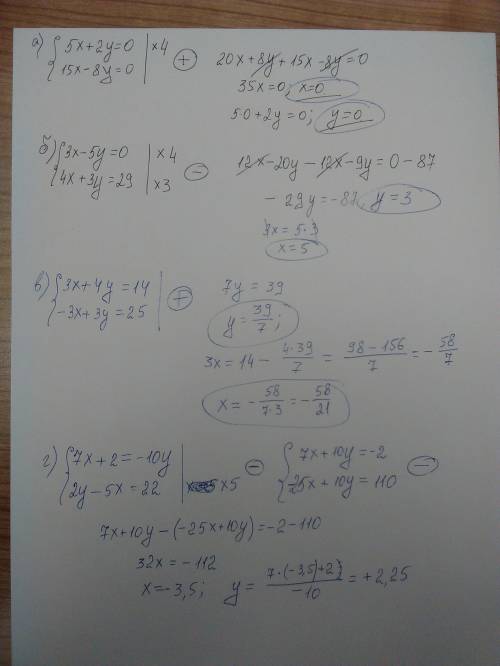 а) { 5x+2y=0 | x4
15x-8y=0 | (+) 20x+8y+15x-8y=0
35x=0; x=0
5·0+2y=0; y=0
б) { 3x-5y=0 | x4
4x+3y=29 | x3 (-) 12x-20y-12x-9y=0-87
-29y=-87 y=3
3x=5·3
x=5
в) { 3x+4y=14
-3x+3y=25 | (+) 7y=39
y=39/7;
3x=14- 4·39/7 = 98-156/7 = -58/7
x=-58/7·3 = -58/21
г) { 7x+2=-10y
2y-5x=22 | x5 (-) { 7x+10y=-2
-25x+10y=110 (-)
7x+10y-(-25x+10y)=-2-110
32x=-112
x=-3,5; y= 7·(-3,5)+2/-10 = +2,25